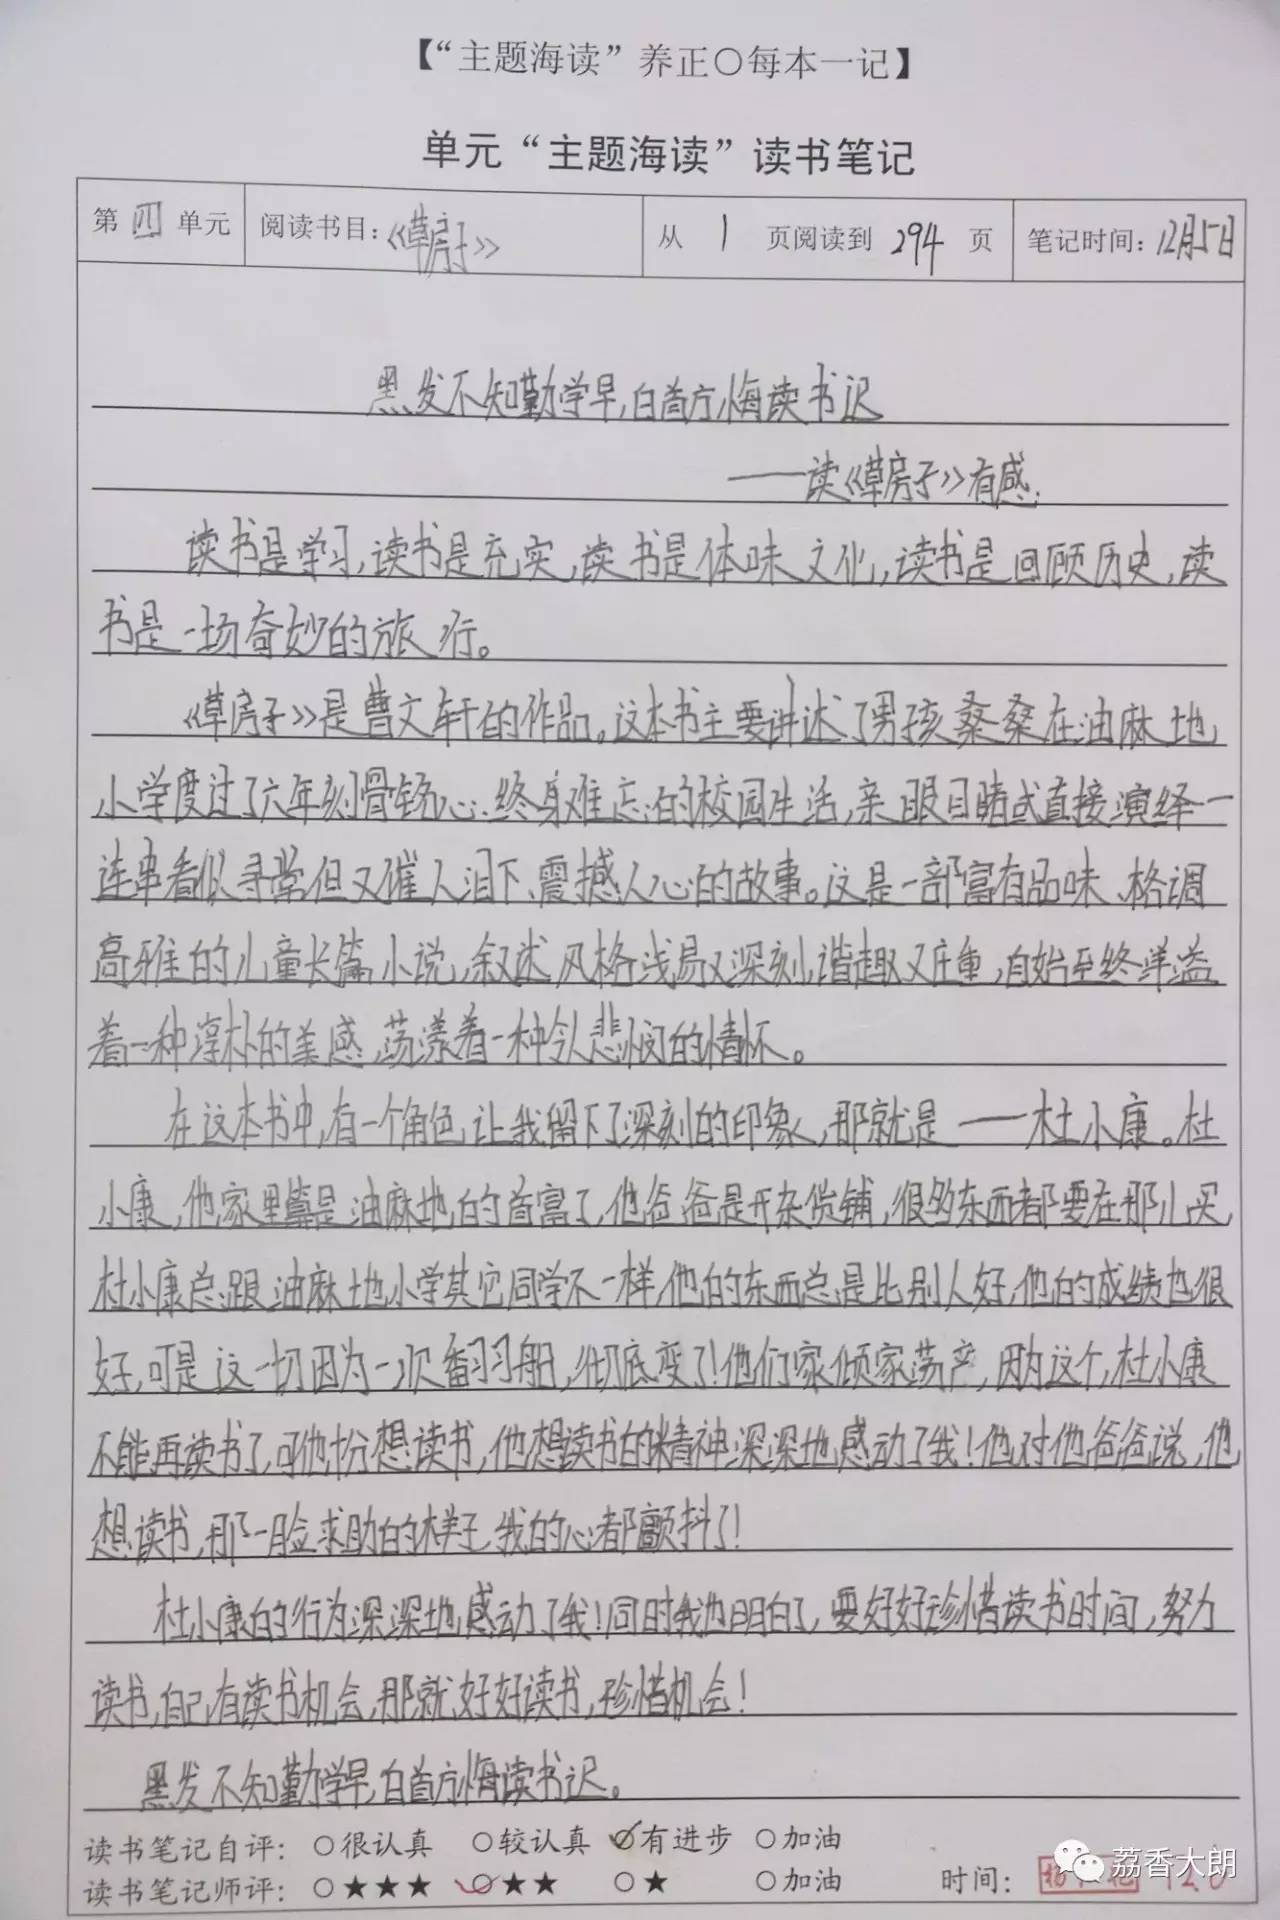 【“主题海读”养正○每本一记】
单元“主题海读”读书笔记
第四单元 阅读书目：《草房子》 从 1 页阅读到 294 页 笔记时间：12月5日
黑发不知勤学早，白首方悔读书迟
——读《草房子》有感
读书是学习，读书是充实，读书是体味文化，读书是回顾历史，读
书是一场奇妙的旅行。
《草房子》是曹文轩的作品。这本书主要讲述了男孩桑桑在油麻地
小学度过了六年刻骨铭心、终身难忘的校园生活，亲眼目睹或直接演绎一
连串看似寻常但又催人泪下、震撼人心的故事。这是一部富有品味、格调
高雅的儿童长篇小说，叙述风格浅易又深刻，谐趣又庄重，自始至终洋溢
着一种淳朴的美感，荡漾着一种令人悲悯的情怀。
在这本书中，有一个角色，让我留下了深刻的印象，那就是——杜小康。杜
小康，他家里算是油麻地的首富了，他爸爸是开杂货铺，很多东西都要在那儿买，
杜小康总跟油麻地小学其它同学不一样，他的东西总是比别人好，他的成绩也很
好，可是这一切因为一次翻船，彻底变了！他们家倾家荡产，因为这个，杜小康
不能再读书了，可他十分想读书，他想读书的精神深深地感动了我！他对他爸爸说，他
想读书，那一脸求助的样子，我的心都颤抖了！
杜小康的行为深深地感动了我！同时我也明白了，要好好珍惜读书时间，努力
读书，自己有读书机会，那就好好读书，珍惜机会！
黑发不知勤学早，白首方悔读书迟。
读书笔记自评：○很认真 ○较认真 ○有进步 ○加油
读书笔记师评：○★★★ ○★★ ○★ ○加油 时间：
荔香大朗